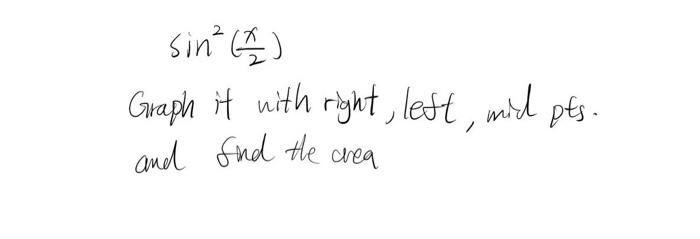 sin² (x/2)
Graph it with right, left, mid pts.
and find the area